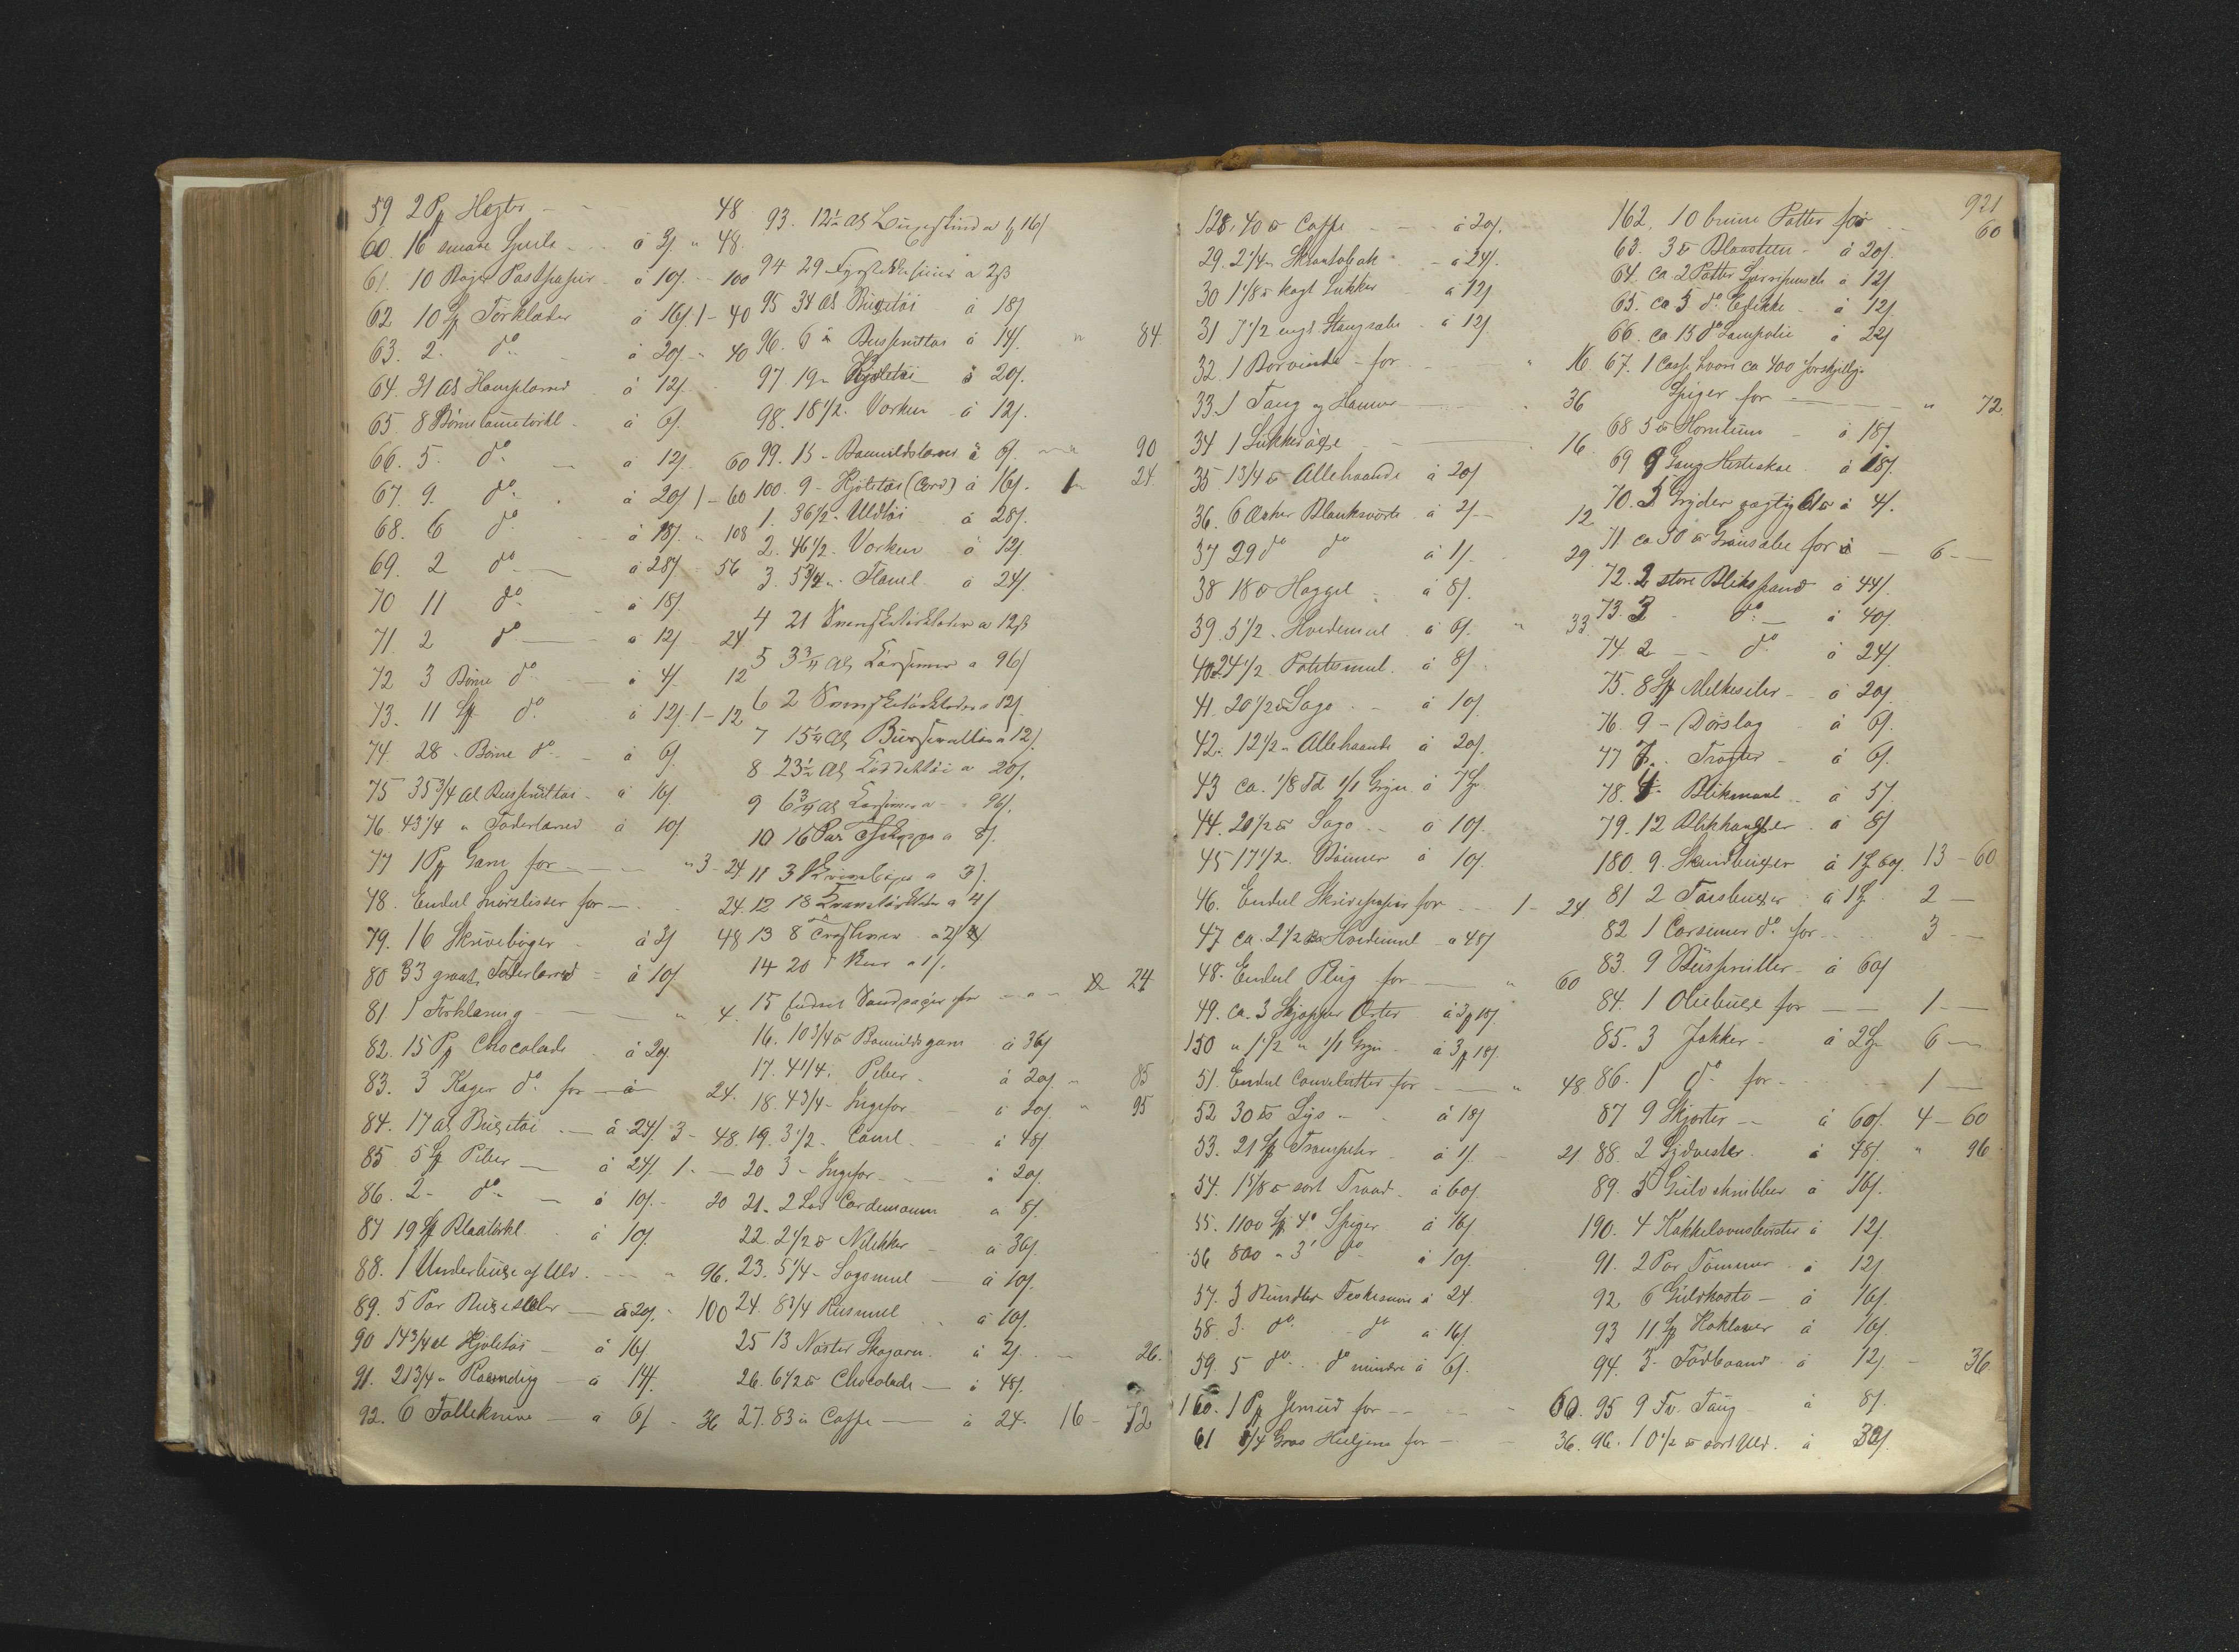 59 2 Pp Hegter - 48
60. 16 smaae Speile - à 3/ " 48.
61. 10 Bøger Postpapir - à 10/ - 100
62 10 St Tørklæder à 16/ 1 - 40
63. 2. do. - à 20/ - " 40
64. 31 Al Hamplærred à 12/
65. 8 Børne tørkl. à 6/
66. 5. do. - à 12/ 60
67. 9. do. . à 20/ 1 - 60
68. 6 do. - à 18/ " 108
69. 2 do. - à 28/ - 56
70 11 do - à 18/
71. 2 do - à 12/ 24
72 3 Børne do - à 4/ 12
73. 11 St do. à 12/ 1 - 12
74. 28 - Børne do - à 6/
75 35 3/4 al Busserultøi - à 16/
76. 43 1/4 " Foderlærred à 10/
77 1 Pp Garn for - - " 3 - 24
78. Endel Snørelisser for - 24.
79. 16 Skrivebøger - à 3/ 48
80 33 graat Foderlærred - à 10/
81. 1 Forklæring - - " 4.
82. 15 Pp Chocolade - à 20/
83. 3 Kager do. for - à - 24.
84. 17 al Buxetøi - à 24/. 3 - 48.
85 5 St Peber - à 24/. 1. -
86. 2 - do - à 10/. - 20
87 19 St Blaatørkl. à 10/
88. 1 Underbuxe af Uld. - - " 96.
89. 5 Par Buxeseler - à 20/. 100
90 14 3/4 al Kjoletøi - à 16/
91. 21 3/4 " - à 14/.
92. 6 Folleknive - à 6/ - 36
93. 12 1/2 Al à 16/
94 29 à 2ß
95 34 Al Buxetøi à 18/
96. 6 " Busserultøi à 14/. " 84
97 19 " Kjoletøi - à 20/.
98. 18 1/2. Vorken - à 12/.
99. 15 - Bomuldslærred à 6/. - " 90
100. 9 - Kjoletøi (Cord) à 16/. 1 - 24
1. 36 1/2 - Uldtøi à 28/.
2. 46 1/2. Vorken à 12/
3. 5 3/4 ". Flanel. à 24/.
4 21 à 12ß
5 3 3/4 Al Carsimer a 96/
6 2 a 12/
7 15 1/4 Al Busserultøi a 12/.
8 23 1/2 Al a 20/.
9 6 3/4 al Carsimer a - 96/.
10 16 Par a 8/.
11 3 a 3/.
12 18 a 4/
13 8 a 2/
14 20 a 1/.
15 Endeel Sandpapir for - " - 24
16. 10 3/4 ℔ Bomuldsgarn à 36/
17. 4 1/4. Peber - à 20/. " 85
18. 4 3/4 - Ingefær - à 20/. " 95
19. 3 1/2 - Canel. - à 48/
20 3 - Ingefær - - à 20/.
21. 2 Lod Cardemomm a 8/.
22. 2 1/2 ℔ Nellikker - à 36/.
23. 5 1/4 - Sagomel - à 10/.
24. 8 3/4 Rismel - à 10/.
25 13 Nøster Skogarn. à 2/. - 26.
26. 6 1/2 ℔ Chocolade - à 48/.
27. 83 ℔ Caffe - à 24. 16 - 72
921
128. 40 ℔ Caffe - - à 20/.
29. 2 1/4 - Skraatobak - à 24/.
30 1 1/8 ℔ Sukker - à 12/
31 7 1/2 engl. Stangsæbe - à 12/
32. 1 Borvinde - for - - " 16
33. 1 Tang og Hammer - - - 36
34 1 Sukkerøxe - - 16
35 1 3/4 ℔ Allehaande à 20/
36. 6 Æsker Blanksværte à 2/ - 12
37 29 do do à 1/ - 29
38 18 ℔ Haggel - à 8/.
39. 5 1/2 - Hvedemel. à 6/. " 33
40. 24 1/2 Potetesmel. à 8/.
41. 20 1/2 ℔ Sago - - à 10/
42. 12 1/2 - Allehaande à 20/.
43 ca. 1/8 Td 1/1 Gryn à 7
44. 20 1/2 ℔ Sago - - à 10/.
45 17 1/2. Bønner à 10/.
46. Endel Skrivepapir for - - 1 - 24
47 ca. 2 1/2 Hvedemel - à 48/
48. Endel Plug for - " 60
49. ca. 3 Skjæpper Erter à 2 18/
150 " 1 1/2 " 1/1 Gryn - à 3 18/
51. Endel Couvelutter for - " 48
52 30 ℔ Lys - - à 18/
53. 21 St Trompeter - à 1/. - 21.
54. 1 5/8 ℔ sort Traad - à 60/.
55. 1100 St 4" Spiger. à 16/
56 800 - 3" do à 10/.
57. 3 Bundter Fiskesnøre à 24.
58. 3. do. - do à 16/.
59. 5 do. - do mindre à 6/.
160. 1 Pp for - - - 60.
61 3/4 Gros for - - 36.
162. 10 brune Potter for - 60
63. 3 ℔ Blaasteen - à 20/.
64. ca 2 Potter à 12/
65. ca 5 do. Edikke - à 12/.
66. ca 15 do. Lampolie à 22/
67. 1 Casse hvori ca 400 forskjellige
Spiger for - - " 72.
68 5 ℔ Hornlim - à 18/.
69 9 Gang Hesteskoe. à 18/.
70. 3 Gryder vægtig 61 ℔ à 4/.
71 ca 30 ℔ Grønsæbe for à - 6 -
72. 2 store Blikspand à 44/.
73. 3 - do. - à 40/.
74 2 - - do à 24/
75. 8 St Melkesiler - à 20/
76. 9 - Dørslag - à 6/.
77 7. - Tragter - à 6/.
78. 4 - Blikmaal - à 5/.
79. 12 Blikhanker. à 8/
180. 9. Skindbuxer à 1 60/. 13 - 60
81 2 Tøisbuxer à 1 2 -
82 1 Carsimer do. for - - 3 -
83. 9 Busseruller - à 60/
84. 1 Oliebuxe for - - 1 -
85. 3 Jakker - à 2 6 -
86. 1 do. for - - 1 -
87 9 Skjorter - - à 60/. 4 - 60
88. 2 Sydvester. à 48/. " 96
89. 3 Gulvskrubber à 16/.
190. 4 Kakkelovnsbørster à 12/.
91. 2 Par Tømmer - à 12/.
92. 6 Gulvkoste - à 16/.
93 11 St à 16/.
94. 3 - Fadbaand à 12/. - 36
95 9 Fv. Taug à 8/.
96. 10 1/2 ℔ sort Uld. à 32/.